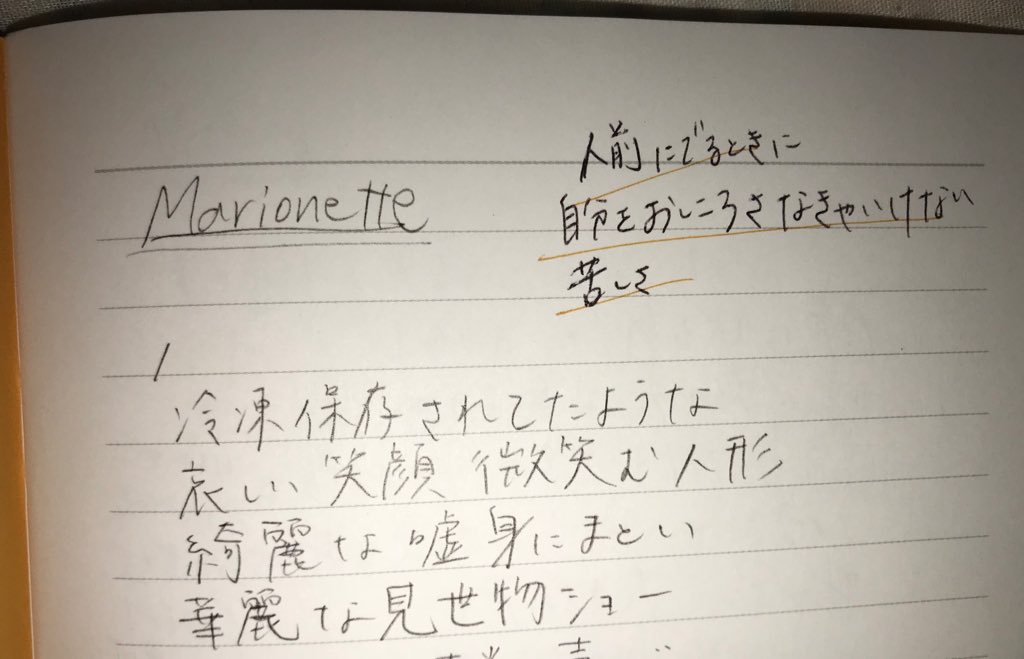 Marionette
人前にでるときに
自分をおしころさなきゃいけない
苦しさ
1
冷凍保存されてたような
哀しい笑顔 微笑む人形
綺麗な嘘身にまとい
華麗な見世物ショー